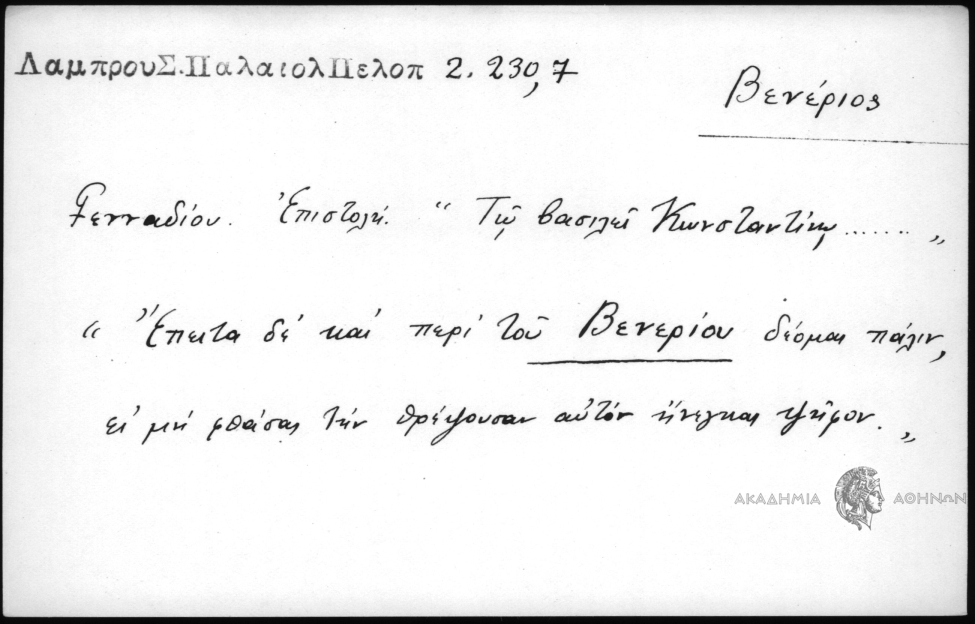 ΛαμπρουΣ.ΠαλαιολΠελοπ 2. 230,7
Βενέριος
Γενναδίου. Ἐπιστολή. “ Τῷ βασιλεῖ Κωνσταντίνῳ ....... „
“ Ἔπειτα δέ καί περί τοῦ Βενερίου δέομαι πάλιν,
εἰ μή φθάσας τήν θρέψουσαν αὐτόν ἤνεγκας ψῆφον. „
ΑΚΑΔΗΜΙΑ ΑΘΗΝΩΝ